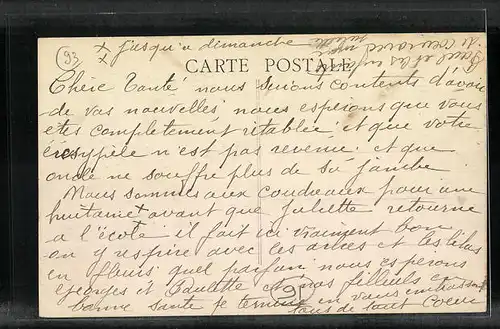 93
+ Jusqu'a dimanche
Juliette
CARTE POSTALE
Chère Tante nous serions contents d'avoir
de vos nouvelles nous esperons que vous
etes completement retablie et que votre
erésypèle n'est pas revenu et que
oncle ne souffre plus de sa jambe
Nous sommes aux coudreaux pour une
huitaine + avant que Juliette retourne
a l'école il fait ici vraiment bon
on y respire avec les et les lilas
en fleurs quel parfum nous esperons
Georges et Paulette et nos filleuls en
bonne santé je termine en vous embrassant
tous de tout coeur